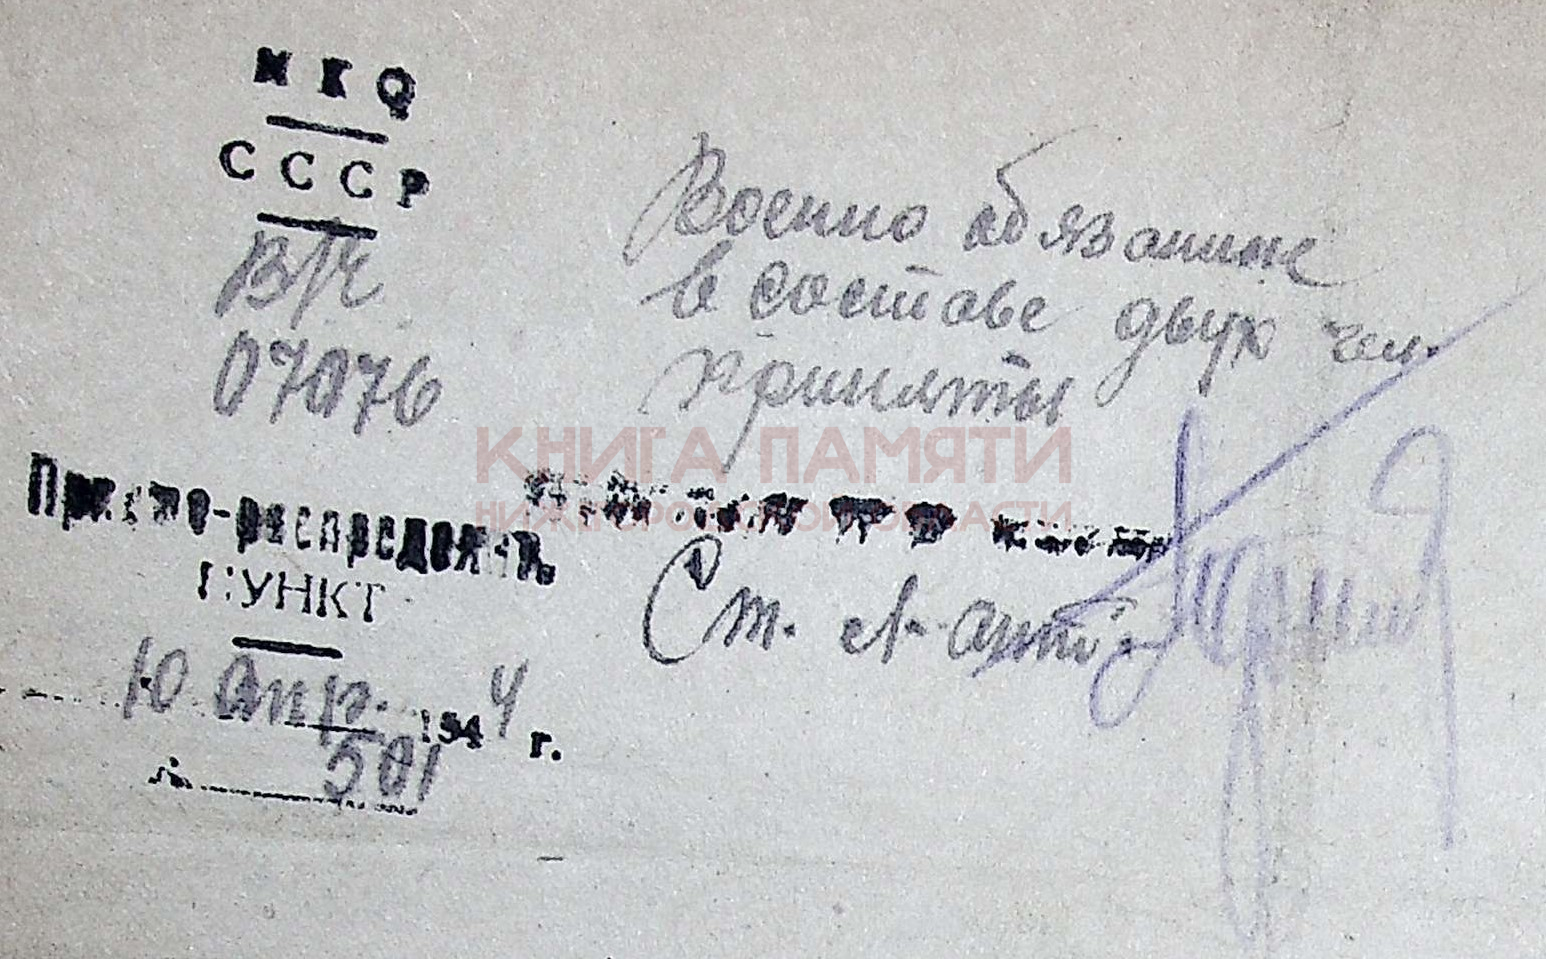 НКО
СССР
ВПЧ
07076
Приемо-распределит.
ПУНКТ
10 апр. 1944 г.
№ 501
Военно обязаные
в составе двух чел.
приняты
Ст. л-т
КНИГА ПАМЯТИ
НИЖЕГОРОДСКОЙ ОБЛАСТИ